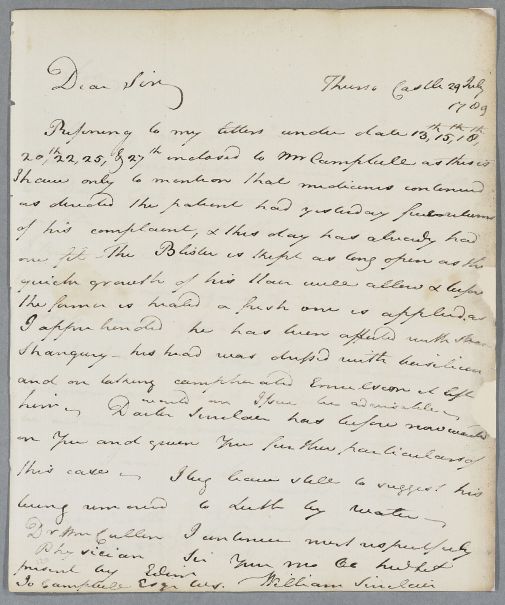 Dear Sir,
Thurso Castle 29 July
1789
Refering to my letters under date 13th, 15th, 18th,
20th, 22, 25, & 27th inclosed to Mr Campbell as this is
I have only to mention that medicines continued
as directed the patient had yesterday five returns
of his complaint, & this day has already had
one fit. The Blister is kept as long open as the
quick growth of his Hair will allow & before
the former is healed a fresh one is applied, as
I apprehended he has been affected with
Strangury - his head was dressed with basilicon
and on taking camphorated Emulsion it left
would an Issue be admissible
him - Doctor Sinclair has before now waited
on You and given You further particulars of
this case - I beg leave still to suggest his
being removed to Leith by water -
Dr Wm Cullen I continue most respectfully
Physician Sir Your mo ob humble
present by Edinr
Jo Campbell Esqr William Sinclair